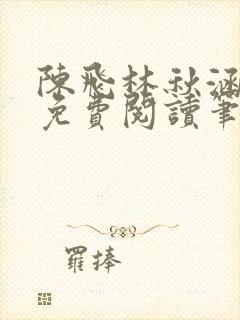 陳飛林秋涵
免費閱讀筆
羅捧